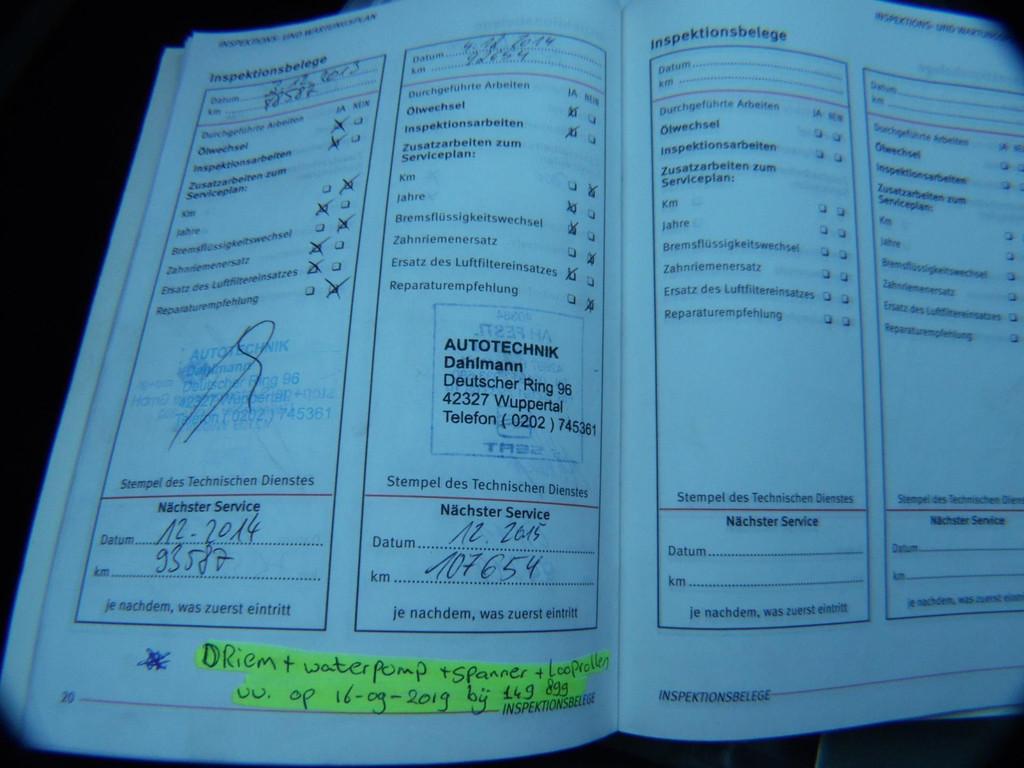 INSPEKTIONS- UND WARTUNGSPLAN
Inspektionsbelege
Datum 2013
km 78587
Durchgeführte Arbeiten JA NEIN
Ölwechsel
Inspektionsarbeiten
Zusatzarbeiten zum
Serviceplan:
Km
Jahre
Bremsflüssigkeitswechsel
Zahnriemenersatz
Ersatz des Luftfiltereinsatzes
Reparaturempfehlung
AUTOTECHNIK
Dahlmann
Deutscher Ring 96
42327 Wuppertal
Telefon ( 0202 ) 745361
Stempel des Technischen Dienstes
Nächster Service
Datum 12.2014
km 93587
je nachdem, was zuerst eintritt
Datum 2014
km 92654
Durchgeführte Arbeiten JA NEIN
Ölwechsel
Inspektionsarbeiten
Zusatzarbeiten zum
Serviceplan:
Km
Jahre
Bremsflüssigkeitswechsel
Zahnriemenersatz
Ersatz des Luftfiltereinsatzes
Reparaturempfehlung
AUTOTECHNIK
Dahlmann
Deutscher Ring 96
42327 Wuppertal
Telefon ( 0202 ) 745361
Stempel des Technischen Dienstes
Nächster Service
Datum 12.2015
km 107654
je nachdem, was zuerst eintritt
DRiem + waterpomp + spanner + Looprollen
vv. op 16-09-2019 bij 149 899
20
INSPEKTIONSBELEGE
INSPEKTIONS- UND WARTUNGS
Inspektionsbelege
Datum
km
Durchgeführte Arbeiten JA NEIN
Ölwechsel
Inspektionsarbeiten
Zusatzarbeiten zum
Serviceplan:
Km
Jahre
Bremsflüssigkeitswechsel
Zahnriemenersatz
Ersatz des Luftfiltereinsatzes
Reparaturempfehlung
Stempel des Technischen Dienstes
Nächster Service
Datum
km
je nachdem, was zuerst eintritt
Datum
km
Durchgeführte Arbeiten JA NE
Ölwechsel
Inspektionsarbeiten
Zusatzarbeiten zum
Serviceplan:
Km
Jahre
Bremsflüssigkeitswechsel
Zahnriemenersatz
Ersatz des Luftfiltereinsatzes
Reparaturempfehlung
Stempel des Technischen Dienstes
Nächster Service
Datum
km
je nachdem, was zuerst eintritt
INSPEKTIONSBELEGE